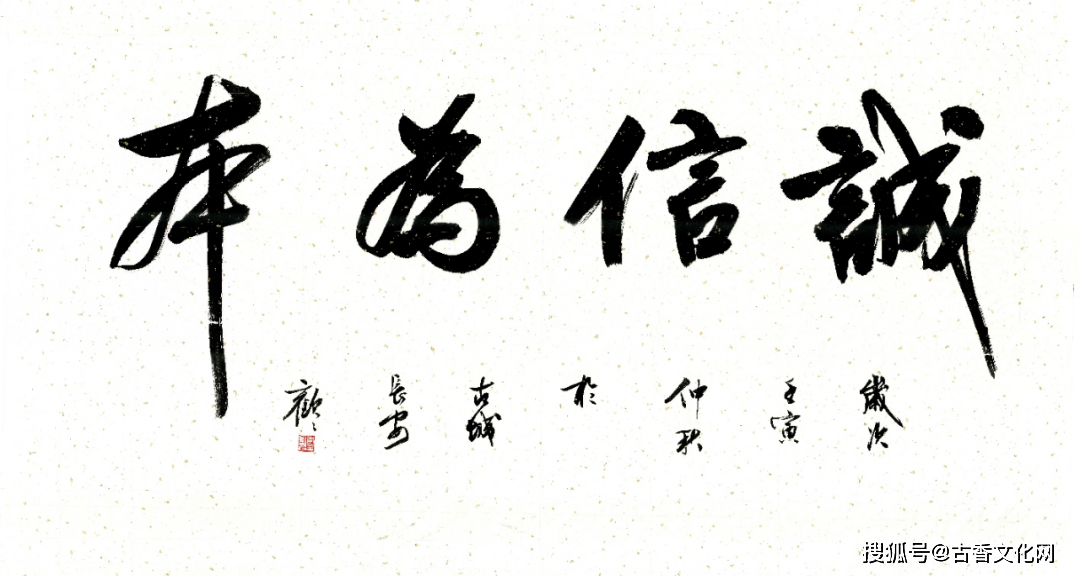 誠信為本
歲次
壬寅
仲秋
於
古城
長安
搜狐号@古香文化网